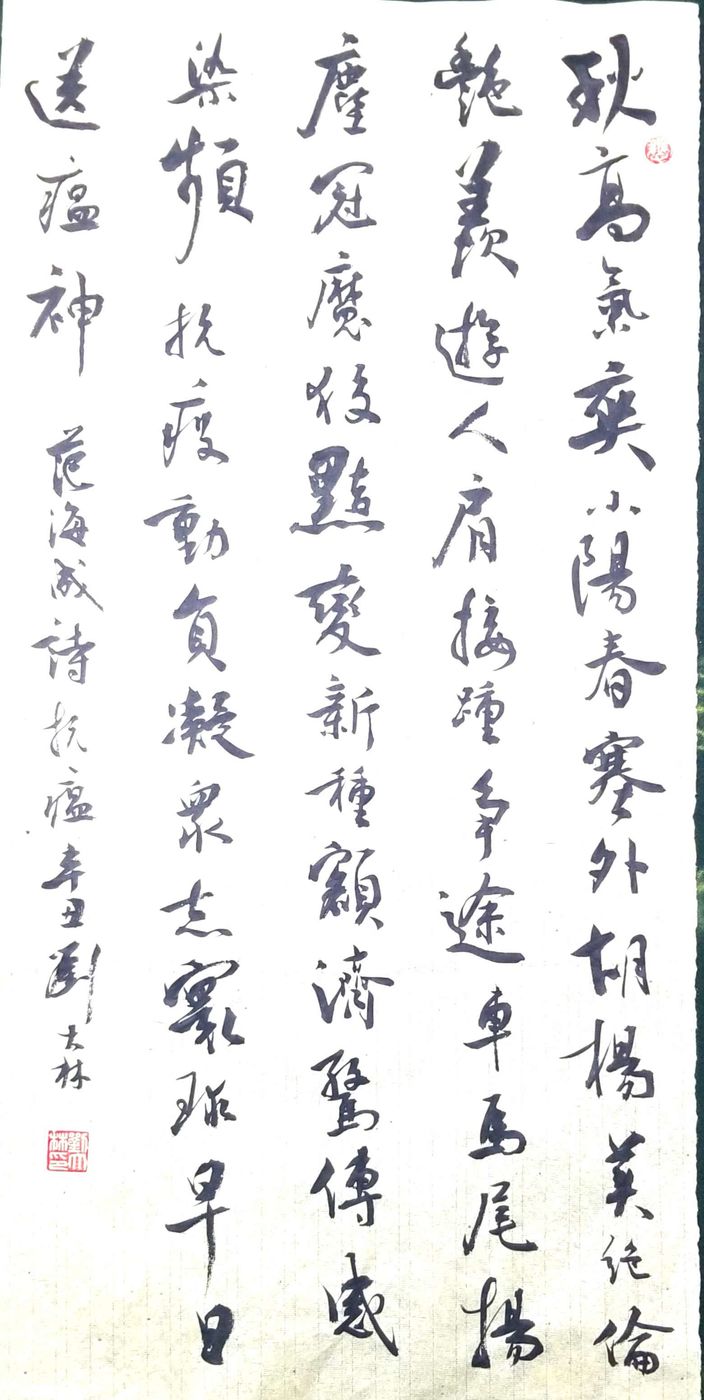 秋高氣爽小陽春塞外胡楊美絕倫
艷羨遊人肩接踵爭途車馬尾揚
塵冠魔狡黠變新種額濟驚傳感
染頻抗疫動員凝眾志寰球早日
送瘟神 范海成詩抗瘟辛丑劉大林
劉大林印